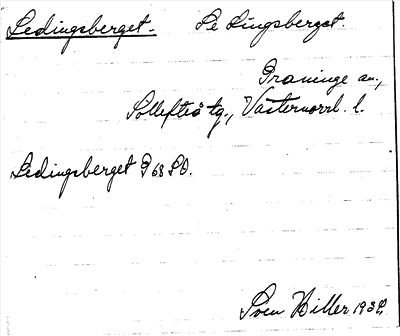 Ledingsberget. Se Lingsberget.
Graninge sn.,
Sollefteå tg., Västernorrl. l.
Ledingsberget G 68 SO.
Sven Hiller 1932